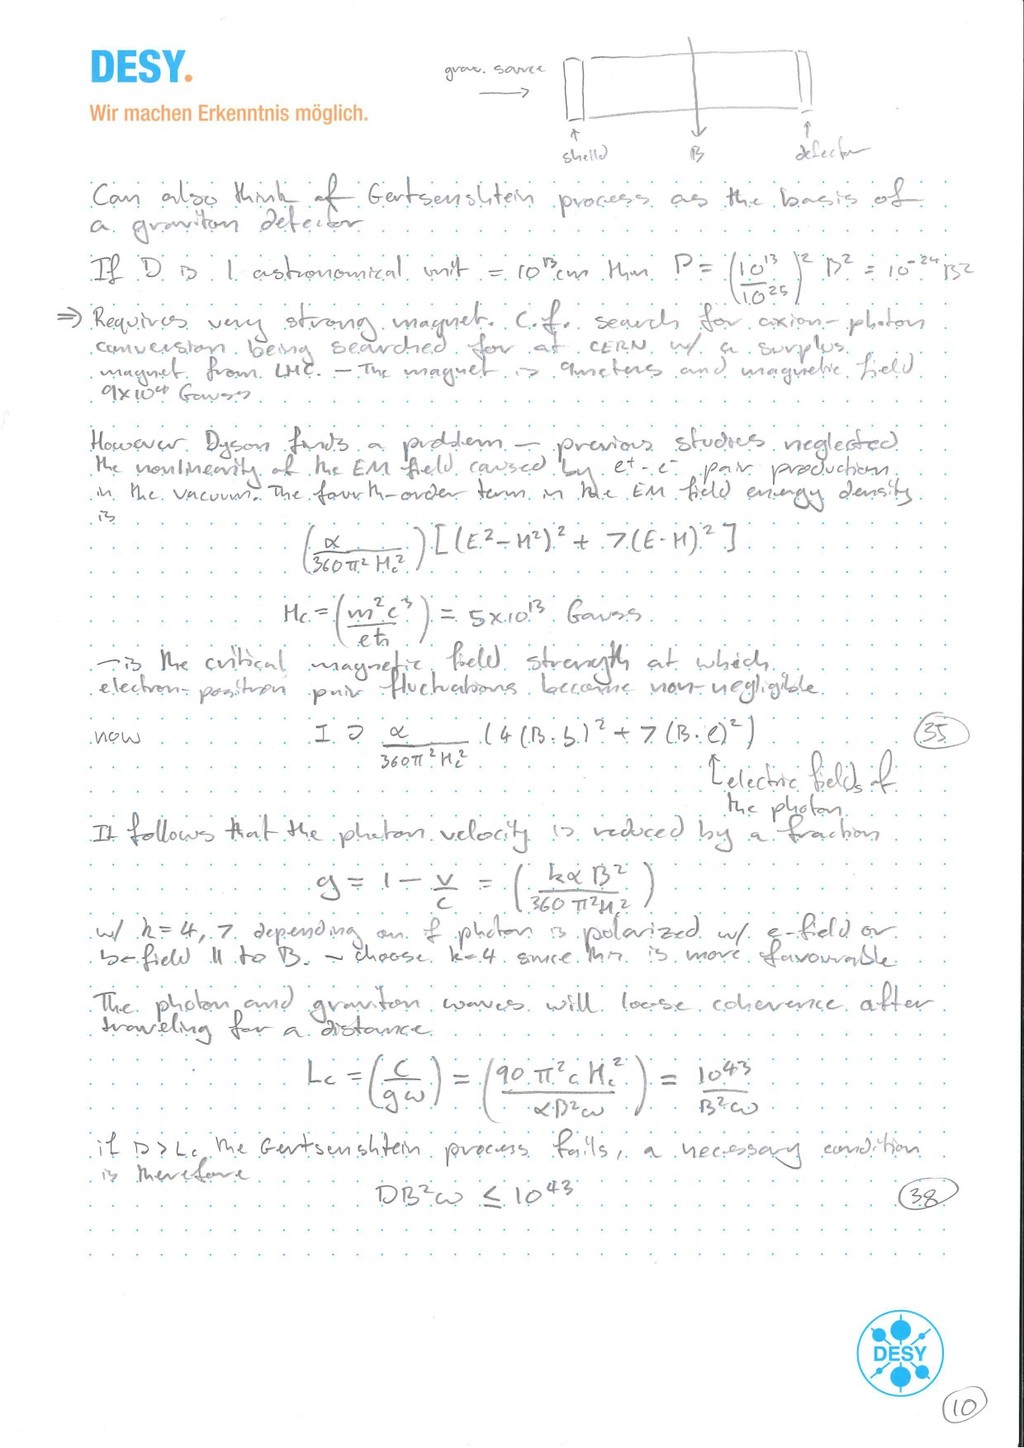 DESY.
Wir machen Erkenntnis möglich.
grav. source
shield
B
detector
Can also think of Gertsenshtein process as the basis of
a graviton detector
If D is 1 astronomical unit = 10^13 cm then P = (10^13/10^25)^2 B^2 = 10^-24 B^2
⇒ Requires very strong magnet. C.f. search for axion-photon
conversion being searched for at CERN w/ a surplus
magnet from LHC. – The magnet is 9meters and magnetic field
9x10^4 Gauss
However Dyson finds a problem – previous studies neglected
the nonlinearity of the EM field caused by e+-e- pair production
in the vacuum. The fourth-order term in the EM field energy density
is
(α/360π²H_c²) [(E²-H²)² + 7(E·H)²]
H_c = (m²c³/eħ) = 5x10^13 Gauss
– is the critical magnetic field strength at which
electron-positron pair fluctuations become non-negligible.
now I ⊃ α/360π²H_c² (4(B·b)² + 7(B·e)²) (35)
electric fields of
the photon
It follows that the photon velocity is reduced by a fraction
g = 1 - v/c = (kαB²/360π²H_c²)
w/ k=4, 7 depending on if photon is polarized w/ e-field or
b-field || to B. – choose k=4 since this is more favourable
The photon and graviton waves will loose coherence after
traveling for a distance
L_c = (c/gω) = (90π²cH_c²/αB²ω) = 10^43/B²ω
if D>L_c the Gertsenshtein process fails, a necessary condition
is therefore
DB²ω ≤ 10^43 (38)
DESY
10